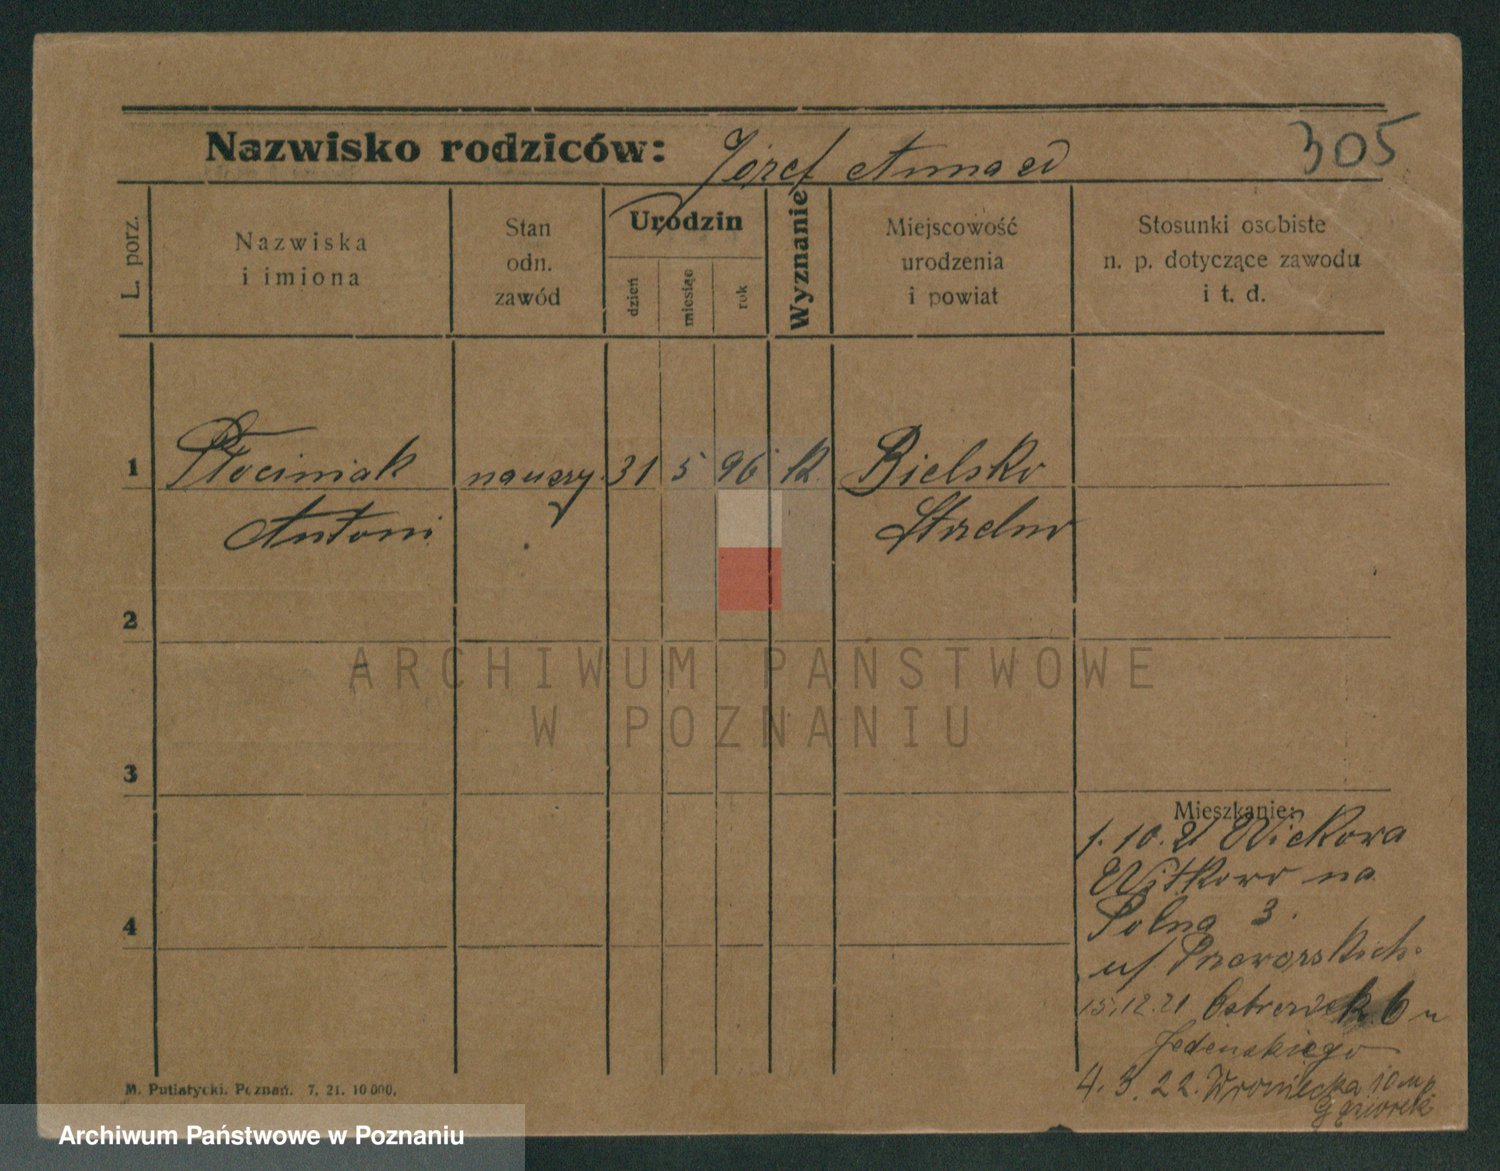 Nazwisko rodziców: Józef Anna
305
L. porz.
Nazwiska
i imiona
Stan
odn.
zawód
Urodzin
dzień
miesiąc
rok
Wyznanie
Miejscowość
urodzenia
i powiat
Stosunki osobiste
n. p. dotyczące zawodu
i t. d.
1 Płociniak nauczy. 31 5 96 k. Bielsko
Antoni Strzelno
2
3
4
Mieszkanie:
1. 10. 21
Witkowo na
Polna 3.
u/
15.12.21 6 u
4. 3. 22. Wroniecka 10
M. Putiatycki. Poznań. 7. 21. 10 000.
ARCHIWUM PAŃSTWOWE
W POZNANIU
Archiwum Państwowe w Poznaniu